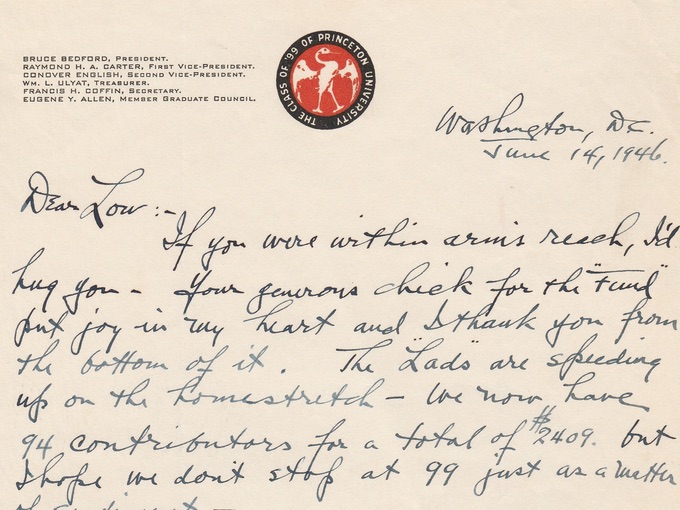 BRUCE BEDFORD, PRESIDENT.
RAYMOND H. A. CARTER, FIRST VICE-PRESIDENT.
CONOVER ENGLISH, SECOND VICE-PRESIDENT.
WM. L. ULYAT, TREASURER.
FRANCIS H. COFFIN, SECRETARY.
EUGENE Y. ALLEN, MEMBER GRADUATE COUNCIL.
THE CLASS OF '99 OF PRINCETON UNIVERSITY
Washington, D.C.
June 14, 1946.
Dear Low:-
If you were within arms reach, I'd
hug you - Your generous check for the "Fund"
put joy in my heart and I thank you from
the bottom of it. The "Lads" are speeding
up on the homestretch - We now have
94 contributors for a total of $2409. but
I hope we don't stop at 99 just as a matter
of